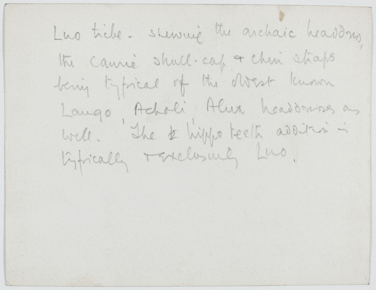 Luo tribe - shewing the archaic headdress,
the cowrie skull-cap & chin straps
being typical of the oldest known
Lango, Acholi, Alur headdresses as
well. The hippo teeth addition is
typically & exclusively Luo.